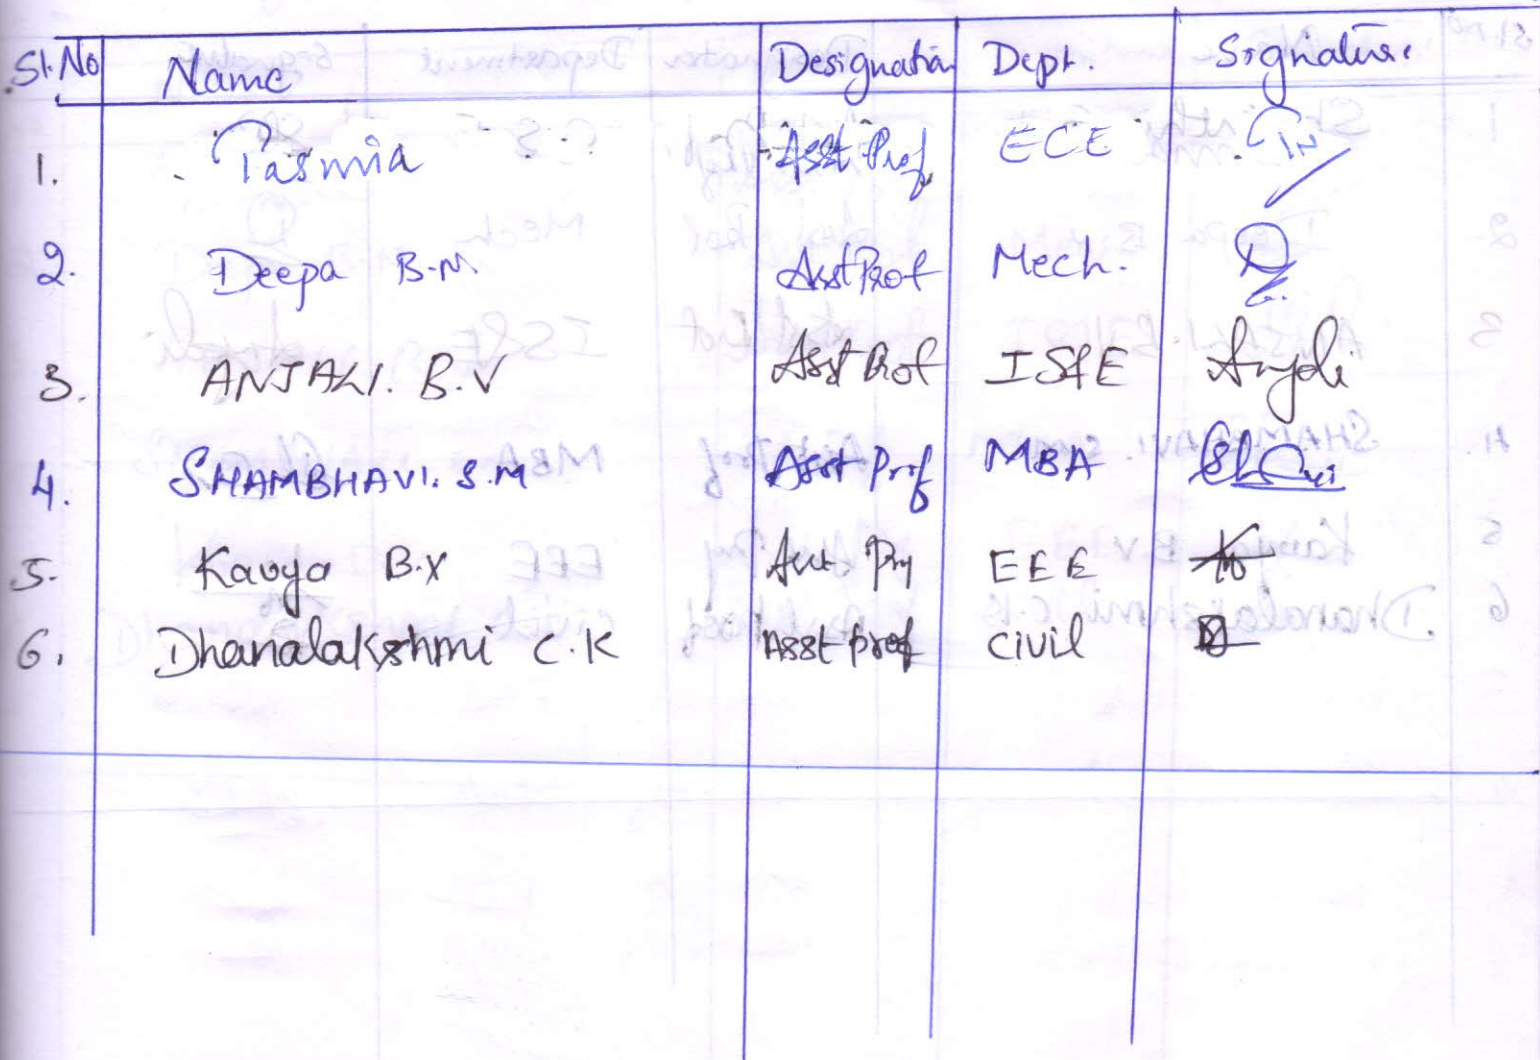 Sl.No Name Designation Dept. Signature
1. Tasmia Asst Prof ECE
2. Deepa B.M Asst Prof Mech.
3. ANJALI. B.V Asst Prof IS&E Anjali
4. SHAMBHAVI. S.M Asst Prof MBA
5. Kavya B.Y Asst. Prof EEE
6. Dhanalakshmi C.K Asst prof civil